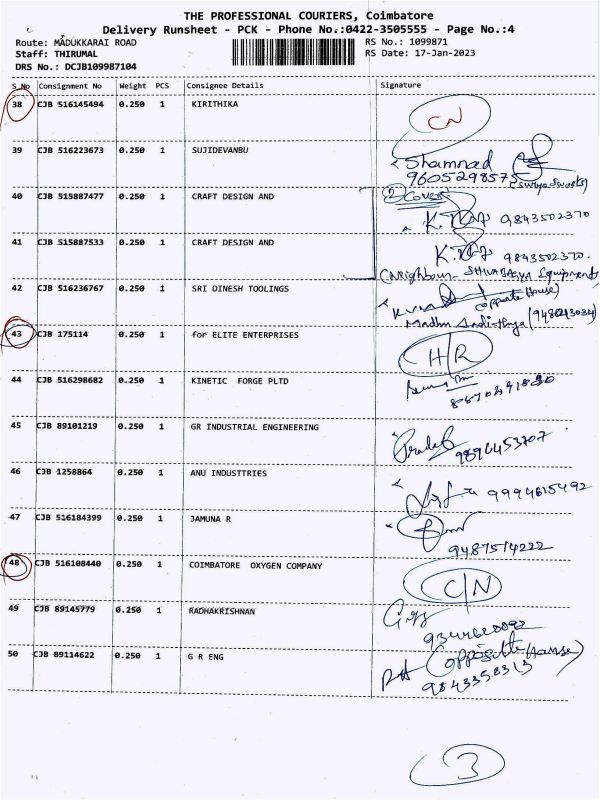 THE PROFESSIONAL COURIERS, Coimbatore
Delivery Runsheet - PCK - Phone No.:0422-3505555 - Page No.:4
Route: MADUKKARAI ROAD RS No.: 1099871
Staff: THIRUMAL RS Date: 17-Jan-2023
DRS No.: DCJB109987104
S_No Consignment No Weight PCS Consignee Details Signature
38 CJB 516145494 0.250 1 KIRITHIKA CN
39 CJB 516223673 0.250 1 SUJIDEVANBU Shamnad
9605298575
40 CJB 515887477 0.250 1 CRAFT DESIGN AND 2 Cover
9843502370
41 CJB 515887533 0.250 1 CRAFT DESIGN AND 9843502370.
42 CJB 516236767 0.250 1 SRI DINESH TOOLINGS
43 CJB 175114 0.250 1 for ELITE ENTERPRISES H/R
44 CJB 516298682 0.250 1 KINETIC FORGE PLTD
45 CJB 89101219 0.250 1 GR INDUSTRIAL ENGINEERING
46 CJB 1258864 0.250 1 ANU INDUSTTRIES 9994615492
47 CJB 516184399 0.250 1 JAMUNA R
9487514222
48 CJB 516108440 0.250 1 COIMBATORE OXYGEN COMPANY C/N
49 CJB 89145779 0.250 1 RADHAKRISHNAN
50 CJB 89114622 0.250 1 G R ENG (opposite house)
9843358313
3